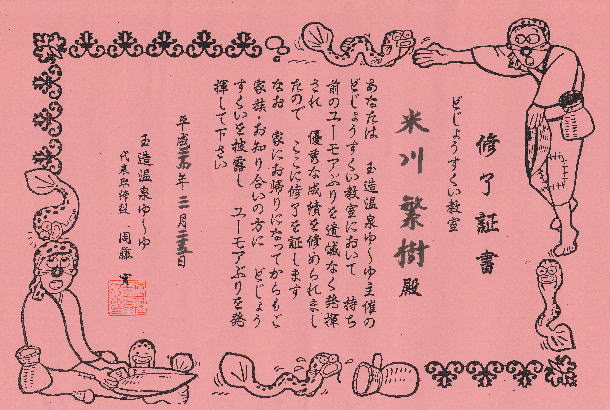 修了証書
どじょうすくい教室
米川 繁樹 殿
あなたは 玉造温泉ゆ〜ゆ主催の
どじょうすくい教室において 持ち
前のユーモアぶりを遺憾なく発揮
され 優秀な成績を修められまし
たので ここに修了を証します
なお 家にお帰りになってからもご
家族・お知り合いの方に どじょう
すくいを披露し ユーモアぶりを発
揮して下さい
平成 年 三月 日
玉造温泉ゆ〜ゆ
代表取締役 周藤 實